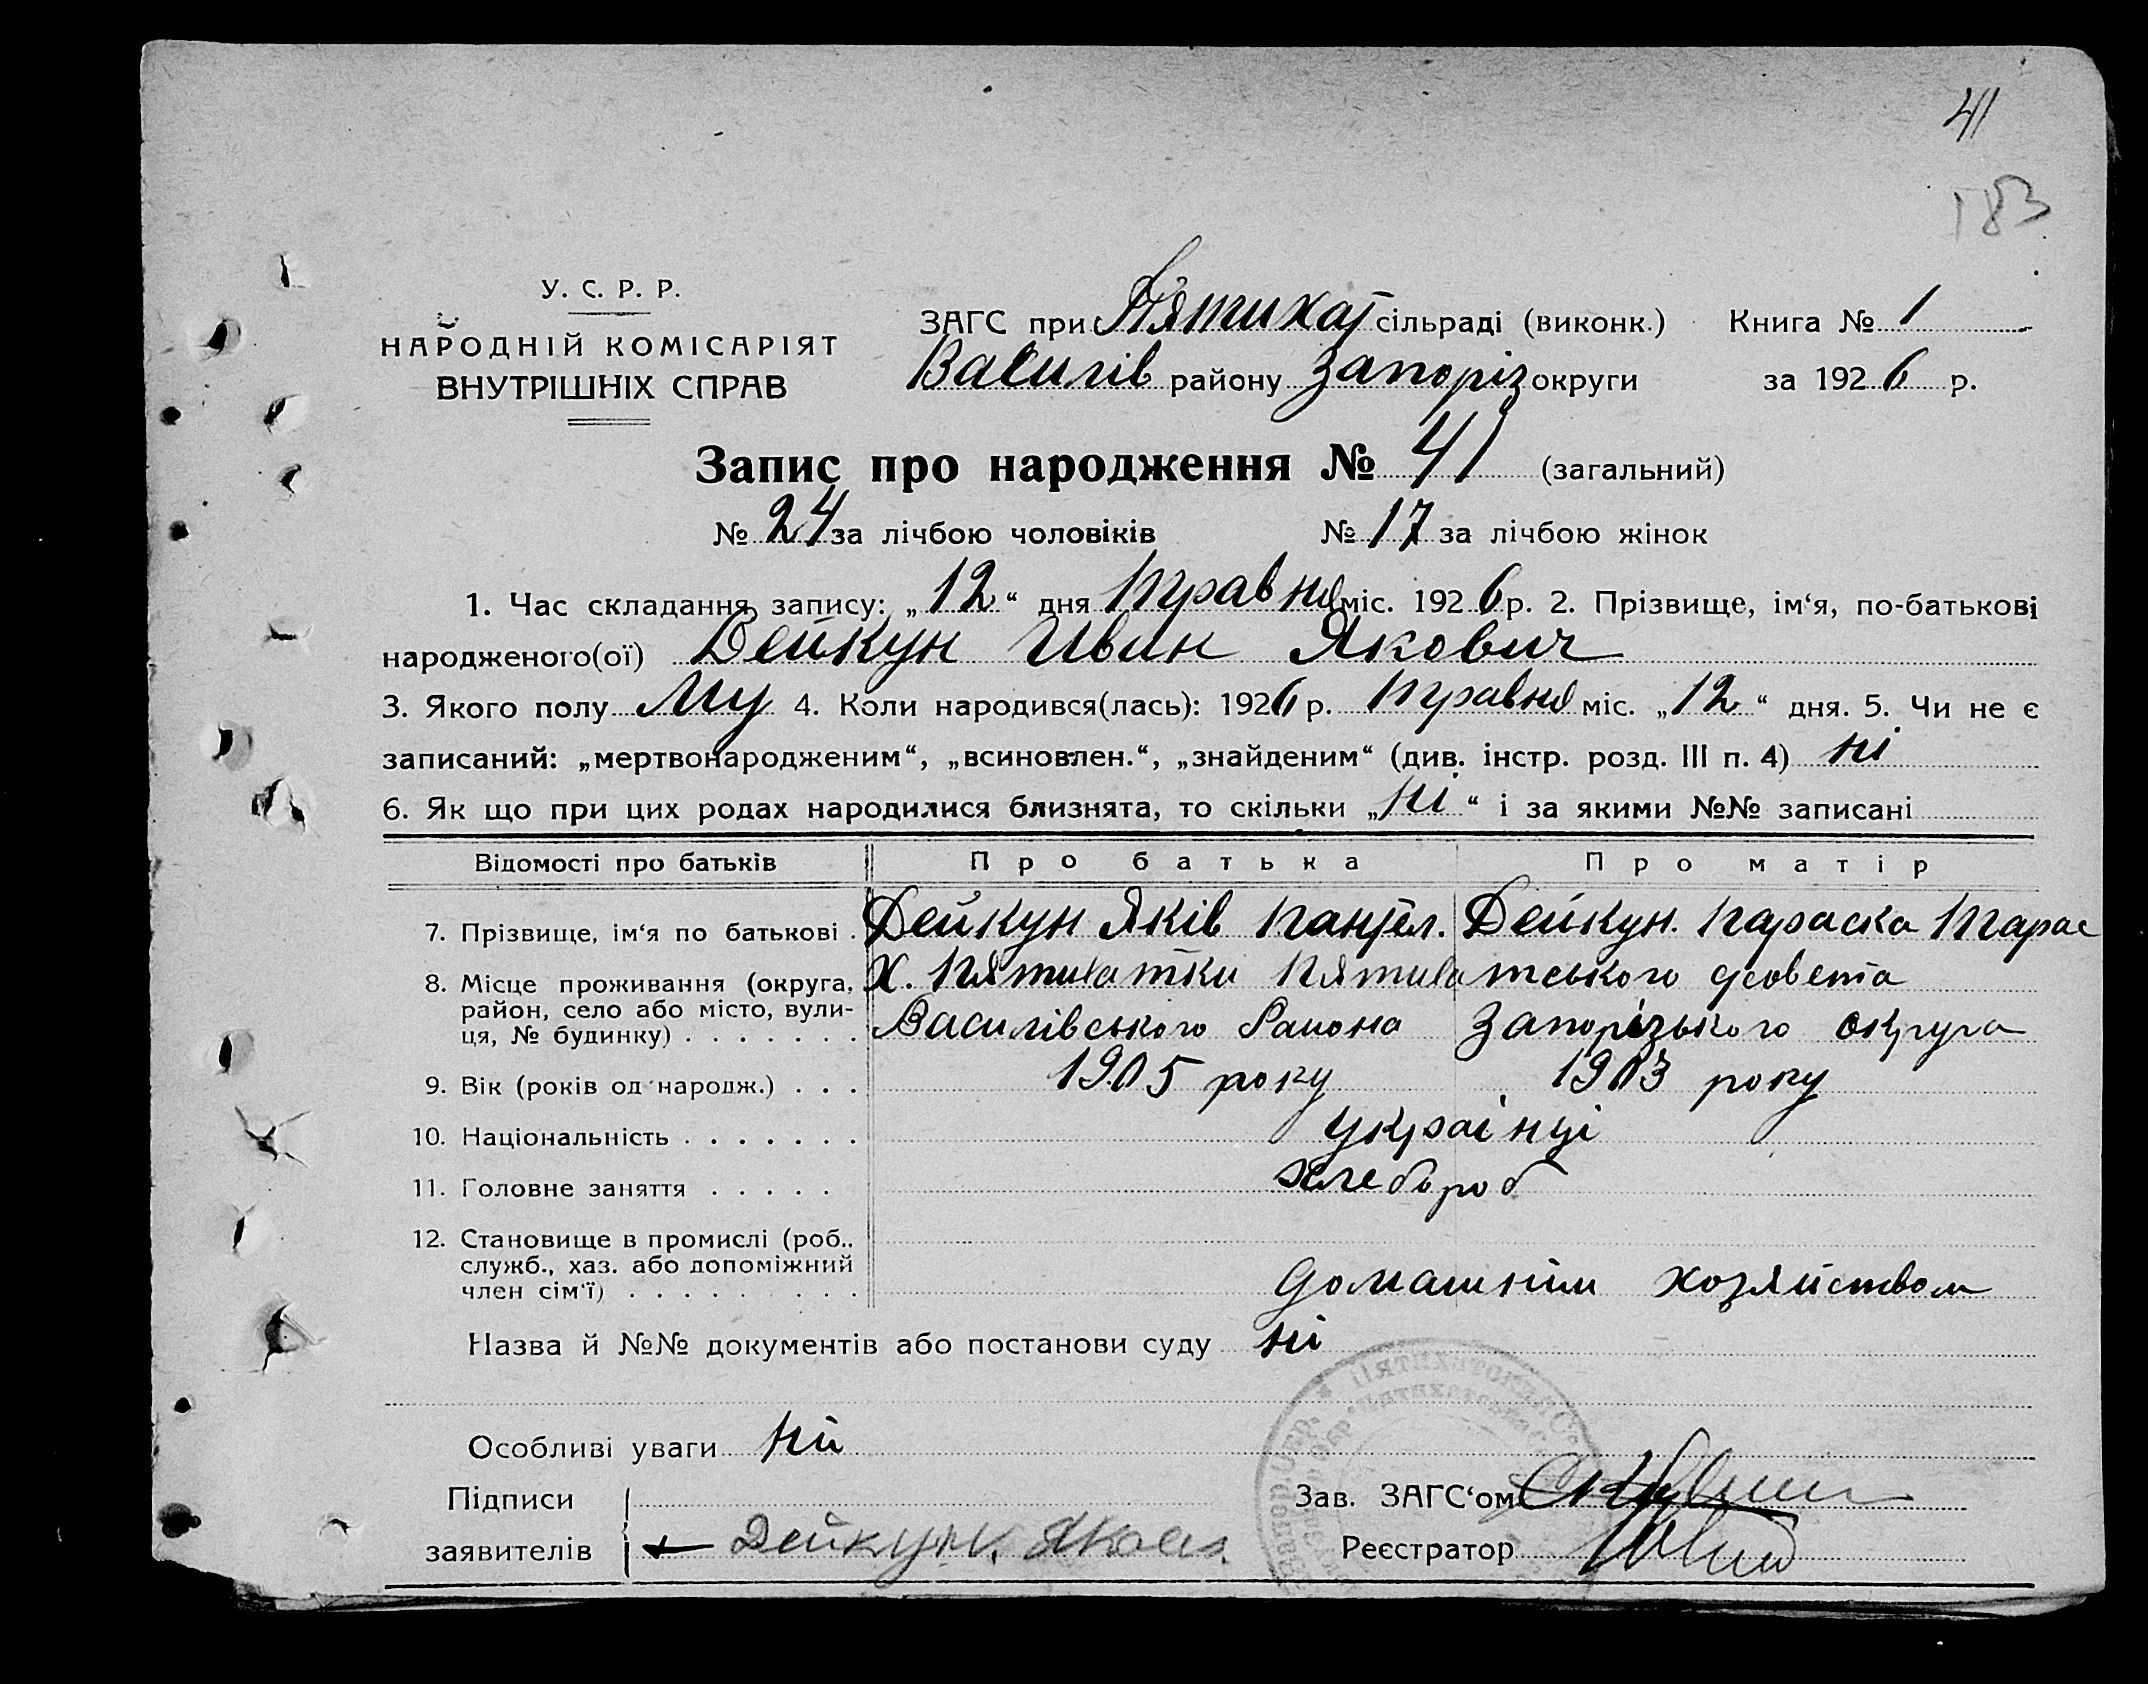 41
183
У. С. Р. Р.
НАРОДНІЙ КОМІСАРІЯТ
ВНУТРІШНІХ СПРАВ
ЗАГС при Пятихат сільраді (виконк.) Книга № 1
Василів району Запоріз округи за 1926 р.
Запис про народження № 41 (загальний)
№ 24 за лічбою чоловіків № 17 за лічбою жінок
1. Час складання запису: „12“ дня травня міс. 1926 р. 2. Прізвище, ім‘я, по-батькові
народженого(ої) Дейкун Иван Якович
3. Якого полу Му 4. Коли народився(лась): 1926 р. травня міс. „12“ дня. 5. Чи не є
записаний: „мертвонародженим“, „всиновлен.“, „знайденим“ (див. інстр. розд. III п. 4) ні
6. Як що при цих родах народилися близнята, то скільки „ні“ і за якими №№ записані
Відомості про батьків Про батька Про матір
7. Прізвище, ім‘я по батькові . Дейкун Яків Пантел. Дейкун. Параска Тарас
8. Місце проживання (округа, х. Пятихатки Пятихатського
район, село або місто, вули-
ця, № будинку) . . . . . . . Василівського Района Запорізького округа
9. Вік (років од народж.) . . . 1905 року 1903 року
10. Національність . . . . . . . українці
11. Головне заняття . . . . . хлебороб
12. Становище в промислі (роб.,
служб., хаз. або допоміжний
член сім‘ї) . . . . . . . . . домашнім хозяйством
Назва й №№ документів або постанови суду ні
Особливі уваги ні
Підписи
заявителів Дейкун. Яков
Зав. ЗАГС‘ом
Реєстратор